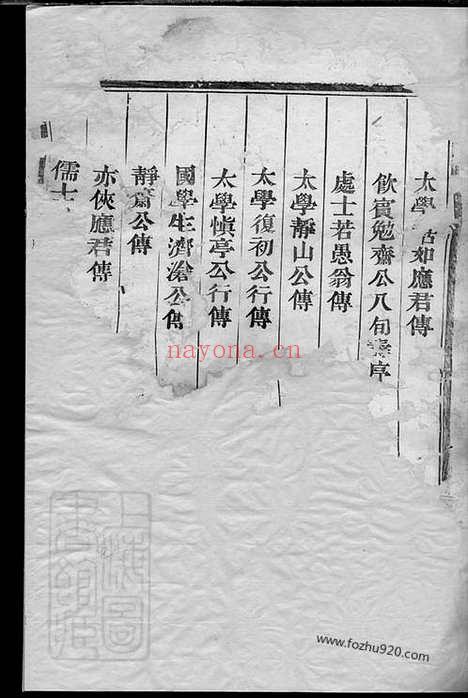 太學 如應君傳
飲賓勉齋公八旬壽序
處士若愚翁傳
太學靜山公傳
太學復初公行傳
太學慎亭公行傳
國學生濟滄公傳
靜齋公傳
亦俠應君傳
儒士
nayona.cn
www.fozhu920.com